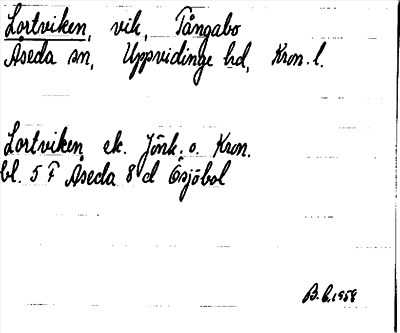 Lortviken, vik, Tångabo
Åseda sn, Uppvidinge hd, Kron. l.
Lortviken ek. Jönk. o. Kron.
bl. 5 F Åseda 8 d Ösjöbol
B.G. 1958